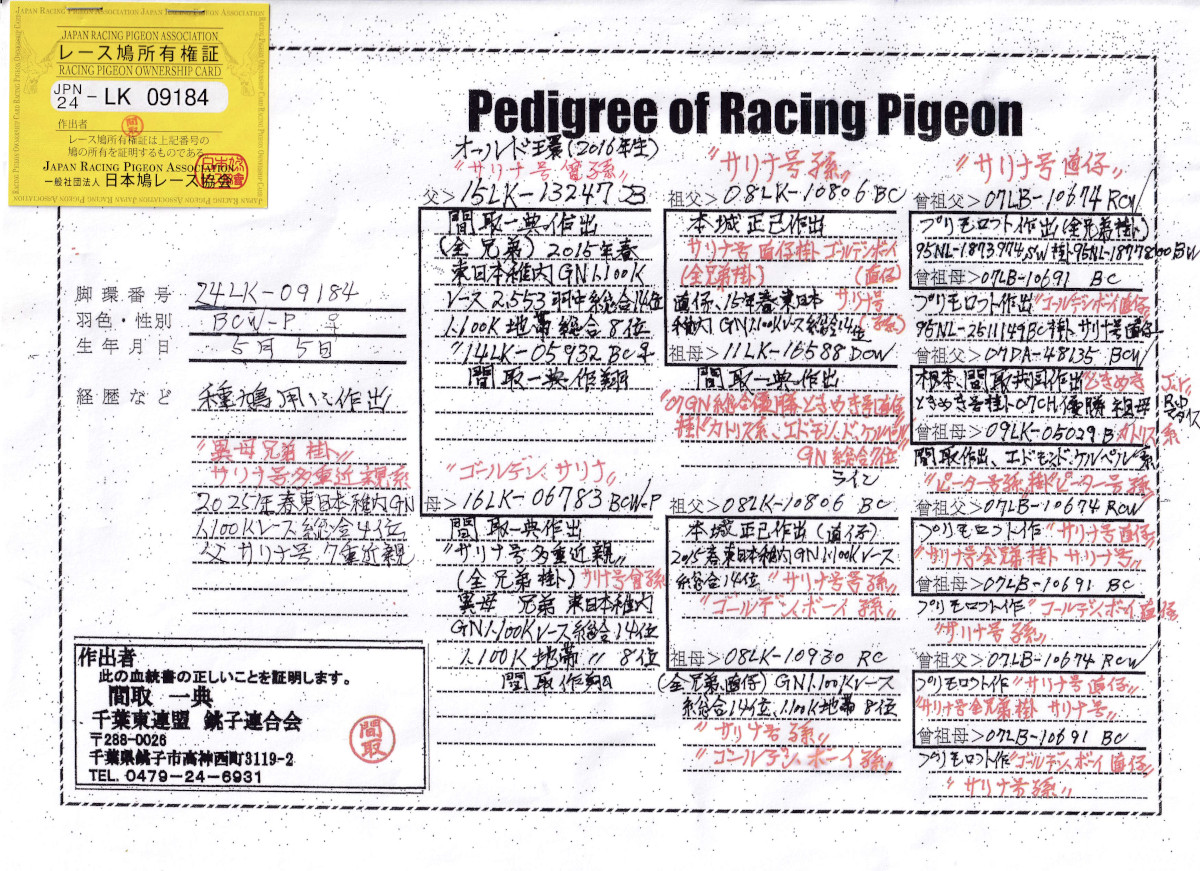 JAPAN RACING PIGEON ASSOCIATION
レース鳩所有権証
RACING PIGEON OWNERSHIP CARD
JPN
24 -LK 09184
作出者
間取
レース鳩所有権証は上記番号の
鳩の所有を証明するものである
JAPAN RACING PIGEON ASSOCIATION
一般社団法人 日本鳩レース協会
Pedigree of Racing Pigeon
脚環番号 24LK-09184
羽色・性別 BCW-P ♀
生年月日 5月5日
経歴など 種鳩用に作出
"異母兄弟掛"
サリナ号多重近親系
2025年春東日本稚内GN
1,100Kレース総合4位
父サリナ号7重近親
作出者
此の血統書の正しいことを証明します。
間取 一典
千葉東連盟 銚子連合会
〒288-0026
千葉県銚子市高神西町3119-2
TEL. 0479-24-6931
間取
オールド王環(2016年生)
"サリナ号曾孫"
父>15LK-13247 B
間取一典作出
(全兄弟) 2015年春
東日本稚内GN1.100K
レース2,553羽中総合14位
1.100K地帯総合8位
"14LK-05932 BC♀
間取一典作翔
"ゴールデン、サリナ"
母>16LK-06783 BCW-P
間取一典作出
"サリナ号多重近親"
(全兄弟掛) サリナ号曾孫
異母 兄弟 東日本稚内
GN1.100Kレース総合14位
1.100K地帯 〃 8位
間取作翔
"サリナ号孫"
祖父>08LK-10806 BC
本城正己作出
サリナ号直仔掛ゴールデンボーイ
(全兄弟掛) (直仔)
直仔、15年春東日本 サリナ号
稚内GN1.100Kレース総合14位 (孫)
祖母>11LK-15588 DCW
間取一典作出
"07GN総合優勝ときめき号直仔
GN総合7位
ライン
祖父>08LK-10806 BC
本城正己作出(直仔)
2015春東日本稚内GN1.100Kレース
総合14位 "サリナ号孫"
"ゴールデン、ボーイ孫"
祖母>08LK-10930 RC
(全兄弟、直仔) GN1.100Kレース
総合14位、1.100K地帯8位
"サリナ号孫"
"ゴールデン、ボーイ孫"
"サリナ号直仔"
曾祖父>07LB-10674 RCW
プリモロフト作出(全兄弟掛)
95NL-1873974,SW掛95NL-1877800 BW
曾祖母>07LB-10691 BC
プリモロフト作出"ゴールデンボーイ直仔
95NL-2511149BC掛サリナ号直仔
曾祖父>07DA-48135 BCW
根本、間取共同作出"ときめきJr"
ときめき号掛07CH優勝祖母
曾祖母>09LK-05029 B カトリス系
間取作出、エドモンド、ケルペル系
"ピーター号孫掛ピーター号孫"
曾祖父>07LB-10674 RCW
プリモロフト作 "サリナ号直仔"
"サリナ号全兄弟掛サリナ号"
曾祖母>07LB-10691 BC
プリモロフト作"ゴールデン、ボーイ直仔
"サリナ号孫"
曾祖父>07LB-10674 RCW
プリモロフト作"サリナ号直仔"
"サリナ号全兄弟掛 サリナ号"
曾祖母>07LB-10691 BC
プリモロフト作"ゴールデン、ボーイ直仔"
"サリナ号孫"